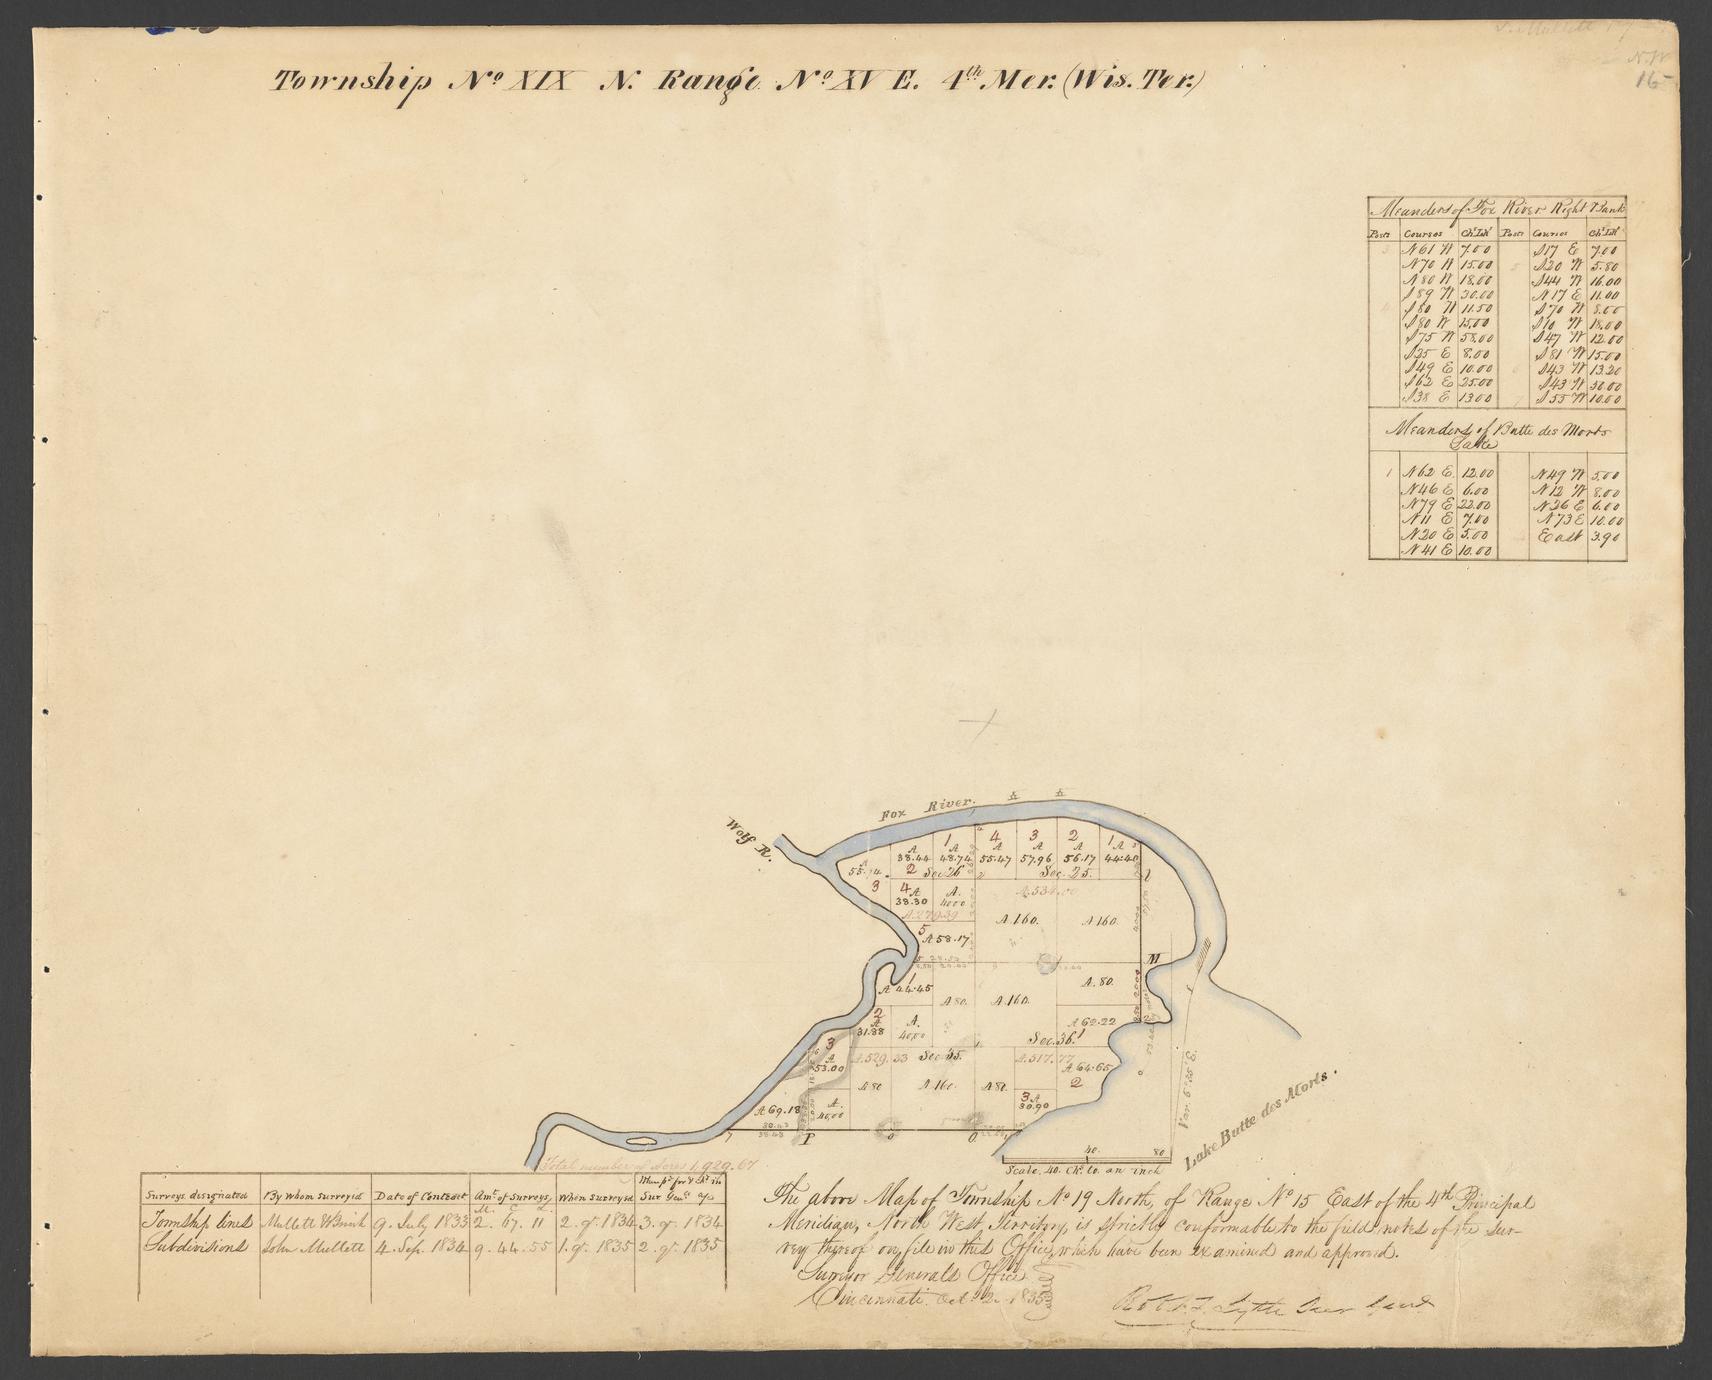 N.W
16
Township No XIX N. Range No XV E. 4th Mer. (Wis. Ter.)
Meanders of Fox River Right Bank
Posts Courses Ch. Lk Posts Courses Ch. Lk
3 N 61 W 7.00 S 17 E 7.00
N 70 W 15.00 5 S 20 W 5.80
N 80 W 18.00 S 44 W 16.00
S 89 W 30.00 N 17 E 11.00
S 80 W 11.50 S 70 W 8.00
S 80 W 15.00 S 10 W 18.00
S 75 W 58.00 S 47 W 12.00
S 25 E 8.00 S 81 W 15.00
S 49 E 10.00 S 43 W 13.20
S 62 E 25.00 S 43 W 50.00
S 38 E 13.00 7 S 55 W 10.00
Meanders of Butte des Morts
Lake
1 N 62 E 12.00 N 49 W 5.00
N 46 E 6.00 N 12 W 8.00
N 79 E 22.00 N 26 E 6.00
N 11 E 7.00 N 73 E 10.00
N 20 E 5.00 East 3.90
N 41 E 10.00
Fox River.
Wolf R.
1 4 3 2 1
A 38.44 A 48.74 A 55.47 A 57.96 A 56.17 A 44.40
A 55.74 2 Sec. 26 Sec. 25.
3 4 A 38.30 A. 40.00 A. 534.00
A. 279.39 A 160. A 160.
5 A 58.17
M
1 A 44.45 A 80. A 160. A. 80.
2 A 31.88 A. 40.00 A 62.22
Sec. 36. 1
3 A 53.00 A. 529.33 Sec. 35. A. 517.77 A 64.65
2
A 80 A 160. A 80.
3 A 30.90
A 69.18 A. 40.00
P
Var. 6° 25' E.
Lake Butte des Morts.
40. 80
Scale, 40. Chs. to an inch
Total number of Acres 1,929.67
Surveys designated By Whom surveyed Date of Contract Amt. of Surveys, When surveyed When pd. for & chd. in Sur Genls. %
M. C. L.
Township lines Mullett & Brink 9. July 1833 2. 67. 11 2. qr. 1834 3. qr. 1834
Subdivisions John Mullett 4. Sep. 1834 9. 44. 55 1. qr. 1835 2. qr. 1835
The above Map of Township No 19 North, of Range No 15 East of the 4th Principal
Meridian, North West Territory, is strictly conformable to the field notes of the sur-
vey thereof on file in this Office, which have been examined and approved.
Surveyor Generals Office
Cincinnati. Oct. 2. 1835
Robt. T. Lytle Surv Genl